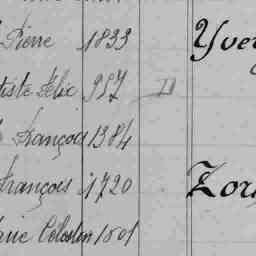 Pierre 1833 Yver
tiste Félix 957 D
François 1384
François 1720 Zor
arie Célestin 1801